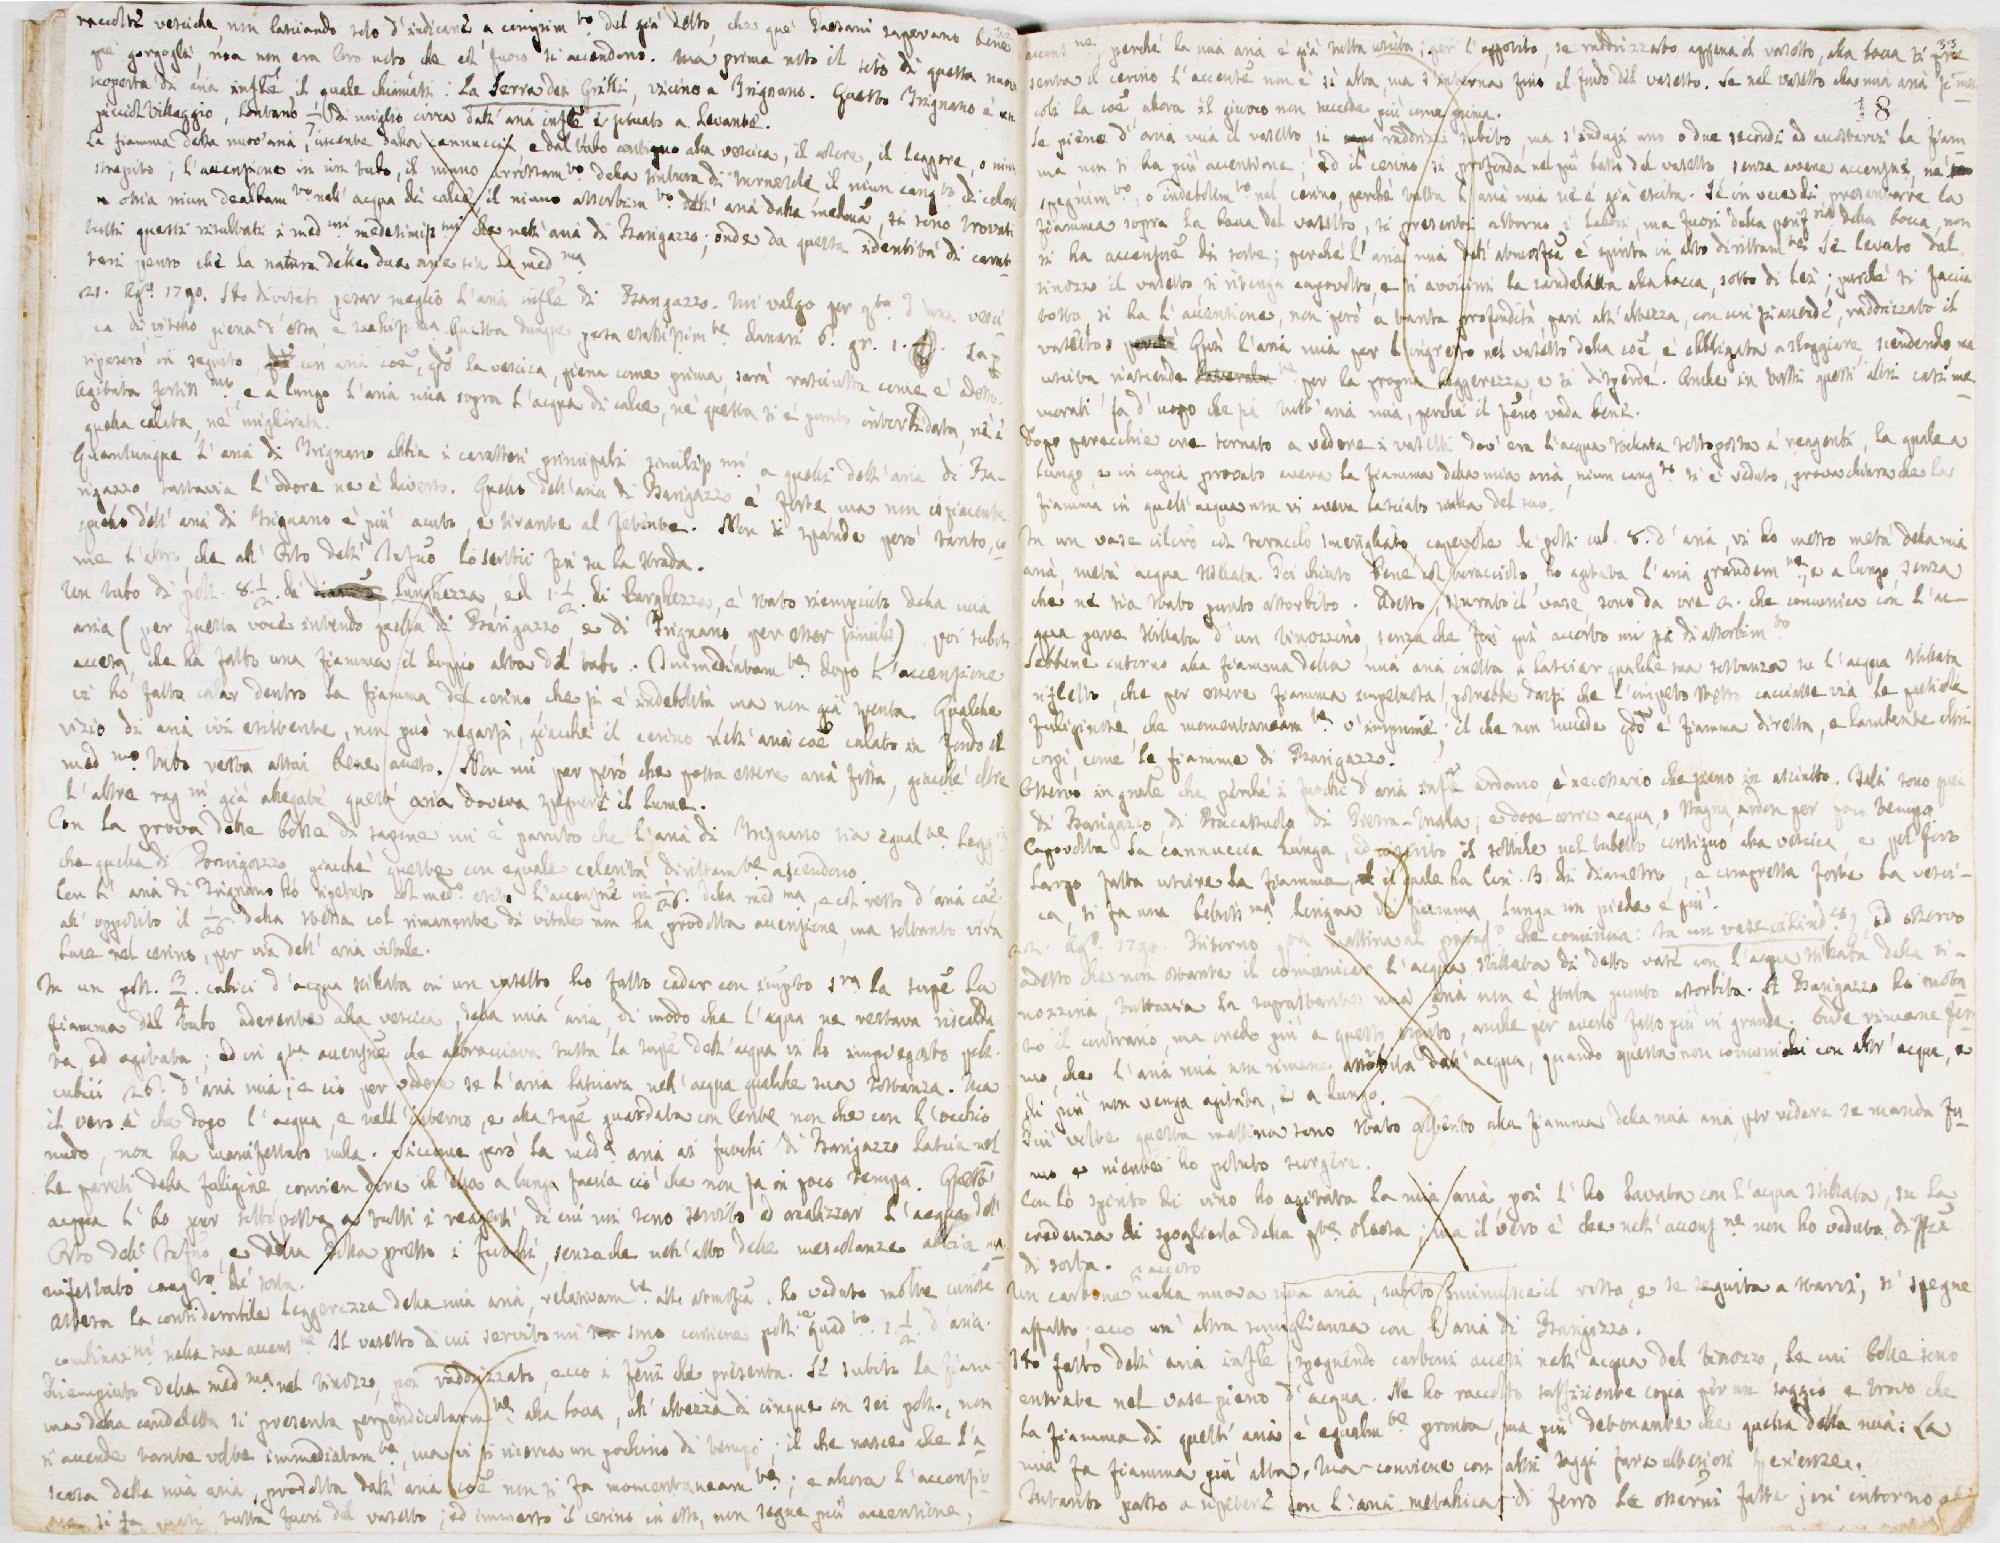 raccolti vesciche, non lasciando solo d'indicare a compim.to del già detto, che que' Paesani sapevano bene
que' gorgogli, ma non era loro noto che col fuoco si accendono. Ma prima noto il sito di questa nuova
scoperta di aria infle il quale chiamasi: La Serra dei Grilli, vicino a Brignano. Questo Brignano è un
piccol villaggio, lontano miglio circa dall'aria infle è situato a Levante.
La fiamma della nuov'aria, uscente dalla cannuccia e dal tubo contiguo alla vescica, il colore, il leggere, o niun
strepito; l'accensione in un tubo, il niuno arrossam.to della tintura di tornesole il niun cang.to di colore
o ossia niun dealbam.to nell'acqua di calce il niuno assorbim.to dell'aria dalla medma, si sono trovati
tutti questi risultati i med.mi medesimiss.mi che nell'aria di Barigazzo; onde da questa identità di carat-
teri penso che la natura delle due arie sia la med.ma
21. Ag.o 1790. Ho divisato pesar meglio l'aria infle di Barigazzo. Mi valgo per q.to d'una vesci-
ca di vitello piena d'essa e Questa dunque pesa esattissim.te danari 6. gr. 1.
ripeserò in seguito con aria coe, qdo la vescica, piena come prima, sarà rasciutta come è adesso.
Agitata fortiss.mte, e a lungo l'aria mia sopra l'acqua di calce, nè questa si è punto intorbidata, nè è
quella calata, nè migliorata.
Quantunque l'aria di Brignano abbia i caratteri principali similiss.mi a quelli dell'aria di Ba-
rigazzo, tuttavia l'odore ne è diverso. Quello dell'aria di Barigazzo è forte ma non ispiacente
quello dell'aria di Brignano è più acuto, e tirante al fetente. Non si spande però tanto, co-
me l'altro, che all'Orto dell' lo sentii fin su la strada.
Un tubo di poll. 8.1/2. di lunghezza ed 1.1/2. di larghezza, è stato riempiuto della mia
aria (per questa voce intendo quella di Barigazzo, e di Brignano per esser simili) poi subito
accesa, che ha fatto una fiamma il doppio alta del tubo. Immediatam.te dopo l'accensione
vi ho fatto calar dentro la fiamma del cerino che si è indebolita ma non già spenta. Qualche
vizio di aria ivi esistente, non può negarsi, giacchè il cerino nell'aria coe calato in fondo il
med.mo tubo resta assai bene acceso. Non mi par però che possa essere aria fissa, giacchè oltre
l'altre rag.ni già allegate quest'aria doveva spegnere il lume.
Con la prova delle bolle di sapone mi è paruto che l'aria di Brignano sia egual.te legg
che quella di Barigazzo giacchè queste con eguale celerità dirittam.te ascendono.
Con l'aria di Brignano ho ripetuto col med.o esito l'accensne in 1/26. della med.ma, e col resto d'aria coe.
all'opposito il 1/26. della stessa col rimanente di vitale non ha prodotta accensione, ma soltanto viva
luce nel cerino, per via dell'aria vitale.
In un poll. 3/4. cubici d'acqua stillata in un vasetto ho fatto cader con impeto s.ra la supe la
fiamma del tubo aderente alla vescica, della mia aria, di modo che l'acqua ne restava riscalda-
ta, ed agitata; ed in q.ta accensne che abbracciava tutta la supe dell'acqua vi ho impiegato poll.
cubici 26. d'aria mia; e ciò per vedere se l'aria lasciava nell'acqua qualche sua sostanza. Ma
il vero è che dopo l'acqua, e nell'interno, e alla supe guardata con lente non che con l'occhio
nudo, non ha manifestato nulla. Siccome però la meda aria ai fuochi di Barigazzo lascia nel-
le pareti della fuligine convien dire ch'ella a lungo faccia ciò che non fa in poco tempo. Questa
acqua l'ho pur sottoposta a tutti i reagenti, di cui mi sono servito ad analizzar l'acqua dell'
Orto dell' , e della presso i fuochi, senza che nell'atto delle mescolanze abbia ma-
nifestato cang.to di sorta.
Attesa la considerabile leggerezza della mia aria, relativam.te all'atmosfca, ho veduto molte curiose
combinaz.ni nella sua accens.ne. Il vasetto di cui servito mi sono contiene poll. quad.to 2.1/2. d'aria.
Riempiuto della med.ma nel tinozzo, poi raddrizzato, ecco i feni che presenta. Se subito la fiam-
ma della candeletta si presenta perpendicolarm.te alla bocca, all'altezza di cinque in sei poll., non
si accende tante volte immediatam.te, ma vi si ricerca un pochino di tempo; il che nasce che l'a-
scesa della mia aria, prodotta dall'aria coe non si fa momentaneam.te; e allora l'accensio-
ne si fa quasi tutta fuori del vasetto; ed immerso il cerino in esso, non segue più accensione,
33
18
accens.ne, perchè la mia aria è già tutta uscita; per l'opposito, se raddrizzato appena il vasetto, alla bocca si pre-
senta il cerino l'accensne non è sì alta, ma s'interna fino al fondo del vasetto. Se nel vasetto alla mia aria si me-
coli la coe allora il giuoco non succede più come prima.
Se pieno d'aria mia il vasetto, si raddrizzi subito, ma s'indugi uno o due secondi ad accostarvi la fiam-
ma non si ha più accensione; ed il cerino si profonda nel più basso del vasetto senza avere accensne, nè
spegnim.to, o indebolim.to nel cerino, perchè tutta l'aria mia ne è già escita. Se in vece di presentare la
fiamma sopra la bocca del vasetto, si presenti attorno i labbri, ma fuori della perif.ria della bocca, non
si ha accensne di sorte; perchè l'aria mia dall'atmosfca è spinta in alto dirittam.te. Se levato dal
tinozzo il vasetto si ritenga capovolto, e si avvicini la candeletta alla bocca, sotto di lei; perchè si faccia
tosto si ha l'accensione, non però a tanta profondità, pari all'altezza, con cui si accende, raddrizzato il
vasetto; Qui l'aria mia per l'ingresso nel vasetto della coe è obbligata a sloggiare, scendendo ma
uscita riascende per la propria leggerezza, e si disperde. Anche in tutti questi altri casi me-
morati fa d'uopo che sia tutt'aria mia, perchè il feno vada bene.
Dopo parecchie ore tornato a vedere i vasetti dov'era l'acqua stillata sottoposta a' reagenti, la quale a
lungo, e in copia provato aveva la fiamma della mia aria, niun cang.to si è veduto, prova chiara che la
fiamma in quell'acqua non vi aveva lasciato nulla del suo.
In un vase cilico col turaccilo smerigliato capevole di poll. cub. 8. d'aria, vi ho messo metà della mia
aria, metà acqua stillata. Poi chiuso bene col turacciolo, ho agitata l'aria grandem.te, e a lungo, senza
che ne sia stato punto assorbito. Adesso, sturato il vase, sono da ore 2. che comunica con l'ac-
qua pure stillata d'un tinozzino, senza che fin quì accorto mi sia di assorbim.to
Sebbene intorno alla fiamma della mia aria inetta a lasciar qualche sua sostanza su l'acqua stillata
rifletto, che per essere fiamma impetuosa, potrebbe darsi che l'impeto stesso cacciasse via le particole
fuliginose che momentaneam.te s'imprime; il che non succede qdo è fiamma diretta, e lambente altri
corpi, come le fiamme di Barigazzo.
Osservo in gnale che perchè i fuochi d'aria infle ardano, è necessario che sieno in asciutto. Tali sono quei
di Barigazzo, di di Pietra-Mala; e dove corre acqua, o stagna, ardon per poco tempo.
Capovolta la cannuccia lunga, ed inserito il sottile nel tubetto contiguo alla vescica e pel foro
largo fatta uscire la fiamma, il quale ha lin. 3. di diametro, e compressa forte la vesci-
ca, si fa una bellissi.ma lingua di fiamma, lunga un piede e più.
22. Ag.o 1790. Ritorno q.ta mattina al che comincia: In un vase cilind.co, ed osservo
adesso che non ostante il comunicar l'acqua stillata di detto vase con l'acqua stillata della ti-
nozzina, tuttavia la soprastante mia aria non è stata punto assorbita. A Barigazzo ho nota-
to il contrario, ma credo più a questo, anche per averlo fatto più in grande. Onde rimane fer-
mo, che l'aria mia non rimane assorbita dall'acqua, quando questa non comunichi con altr'acqua, e
di più non venga agitata, e a lungo.
Più volte questa mattina sono stato attento alla fiamma della mia aria, per vedere se manda fu-
mo e niente ho potuto scorgere.
Con lo spirito di vino ho agitata la mia aria poi l'ho lavata con l'acqua stillata, su la
credenza di spogliarla della p.te oleosa; ma il vero è che nell'accens.ne non ho veduta diffza
di sorta.
Un carbone acceso nella nuova mia aria, subito diminuisce il rosso, e se seguita a starvi, si spegne
affatto; ecco un'altra somiglianza con l'aria di Barigazzo.
Ho fatto dell'aria infle spegnendo carboni accesi nell'acqua del tinozzo, le cui bolle sono
entrate nel vase pieno d'acqua. Ne ho raccolto sufficiente copia per un saggio e trovo che
la fiamma di quest'aria è egualm.te pronta, ma più detonante che quella della mia: La
mia fa fiamma più alta. Ma conviene con altri saggi fare ulteriori sperienze.
Intanto passo a ripetere con l'aria metallica di ferro le osserni fatte jeri intorno a